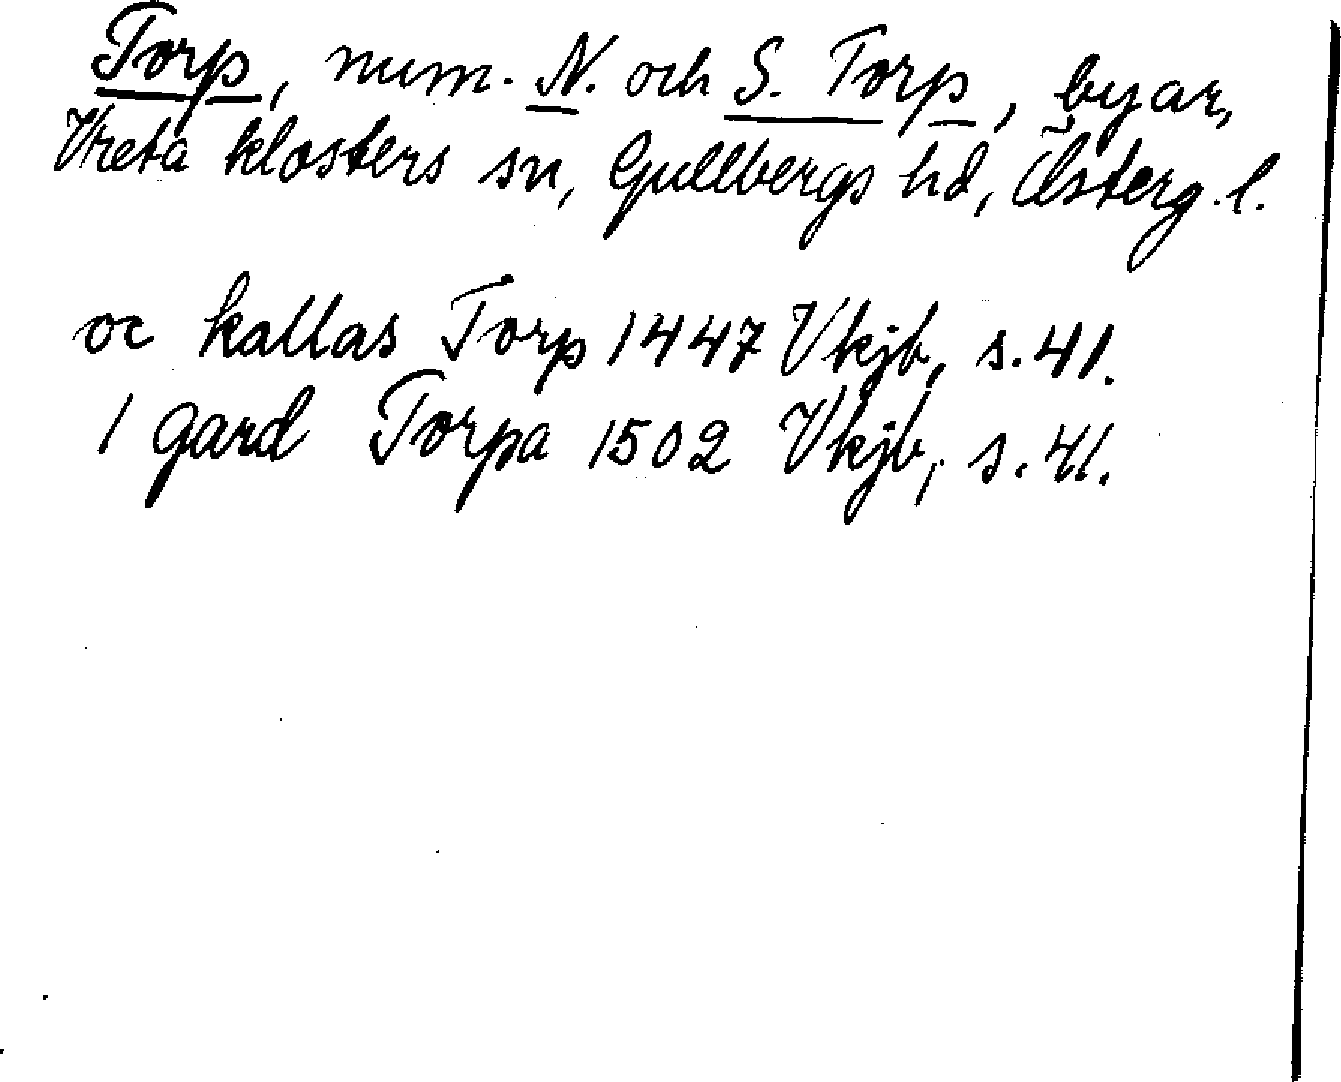 Torp, num. N. och S. Torp, byar,
Vreta klosters sn, Gullbergs hd, Österg. l.
oc kallas Torp 1447 Vkjb, s. 41.
1 gard Torpa 1502 Vkjb, s. 41.